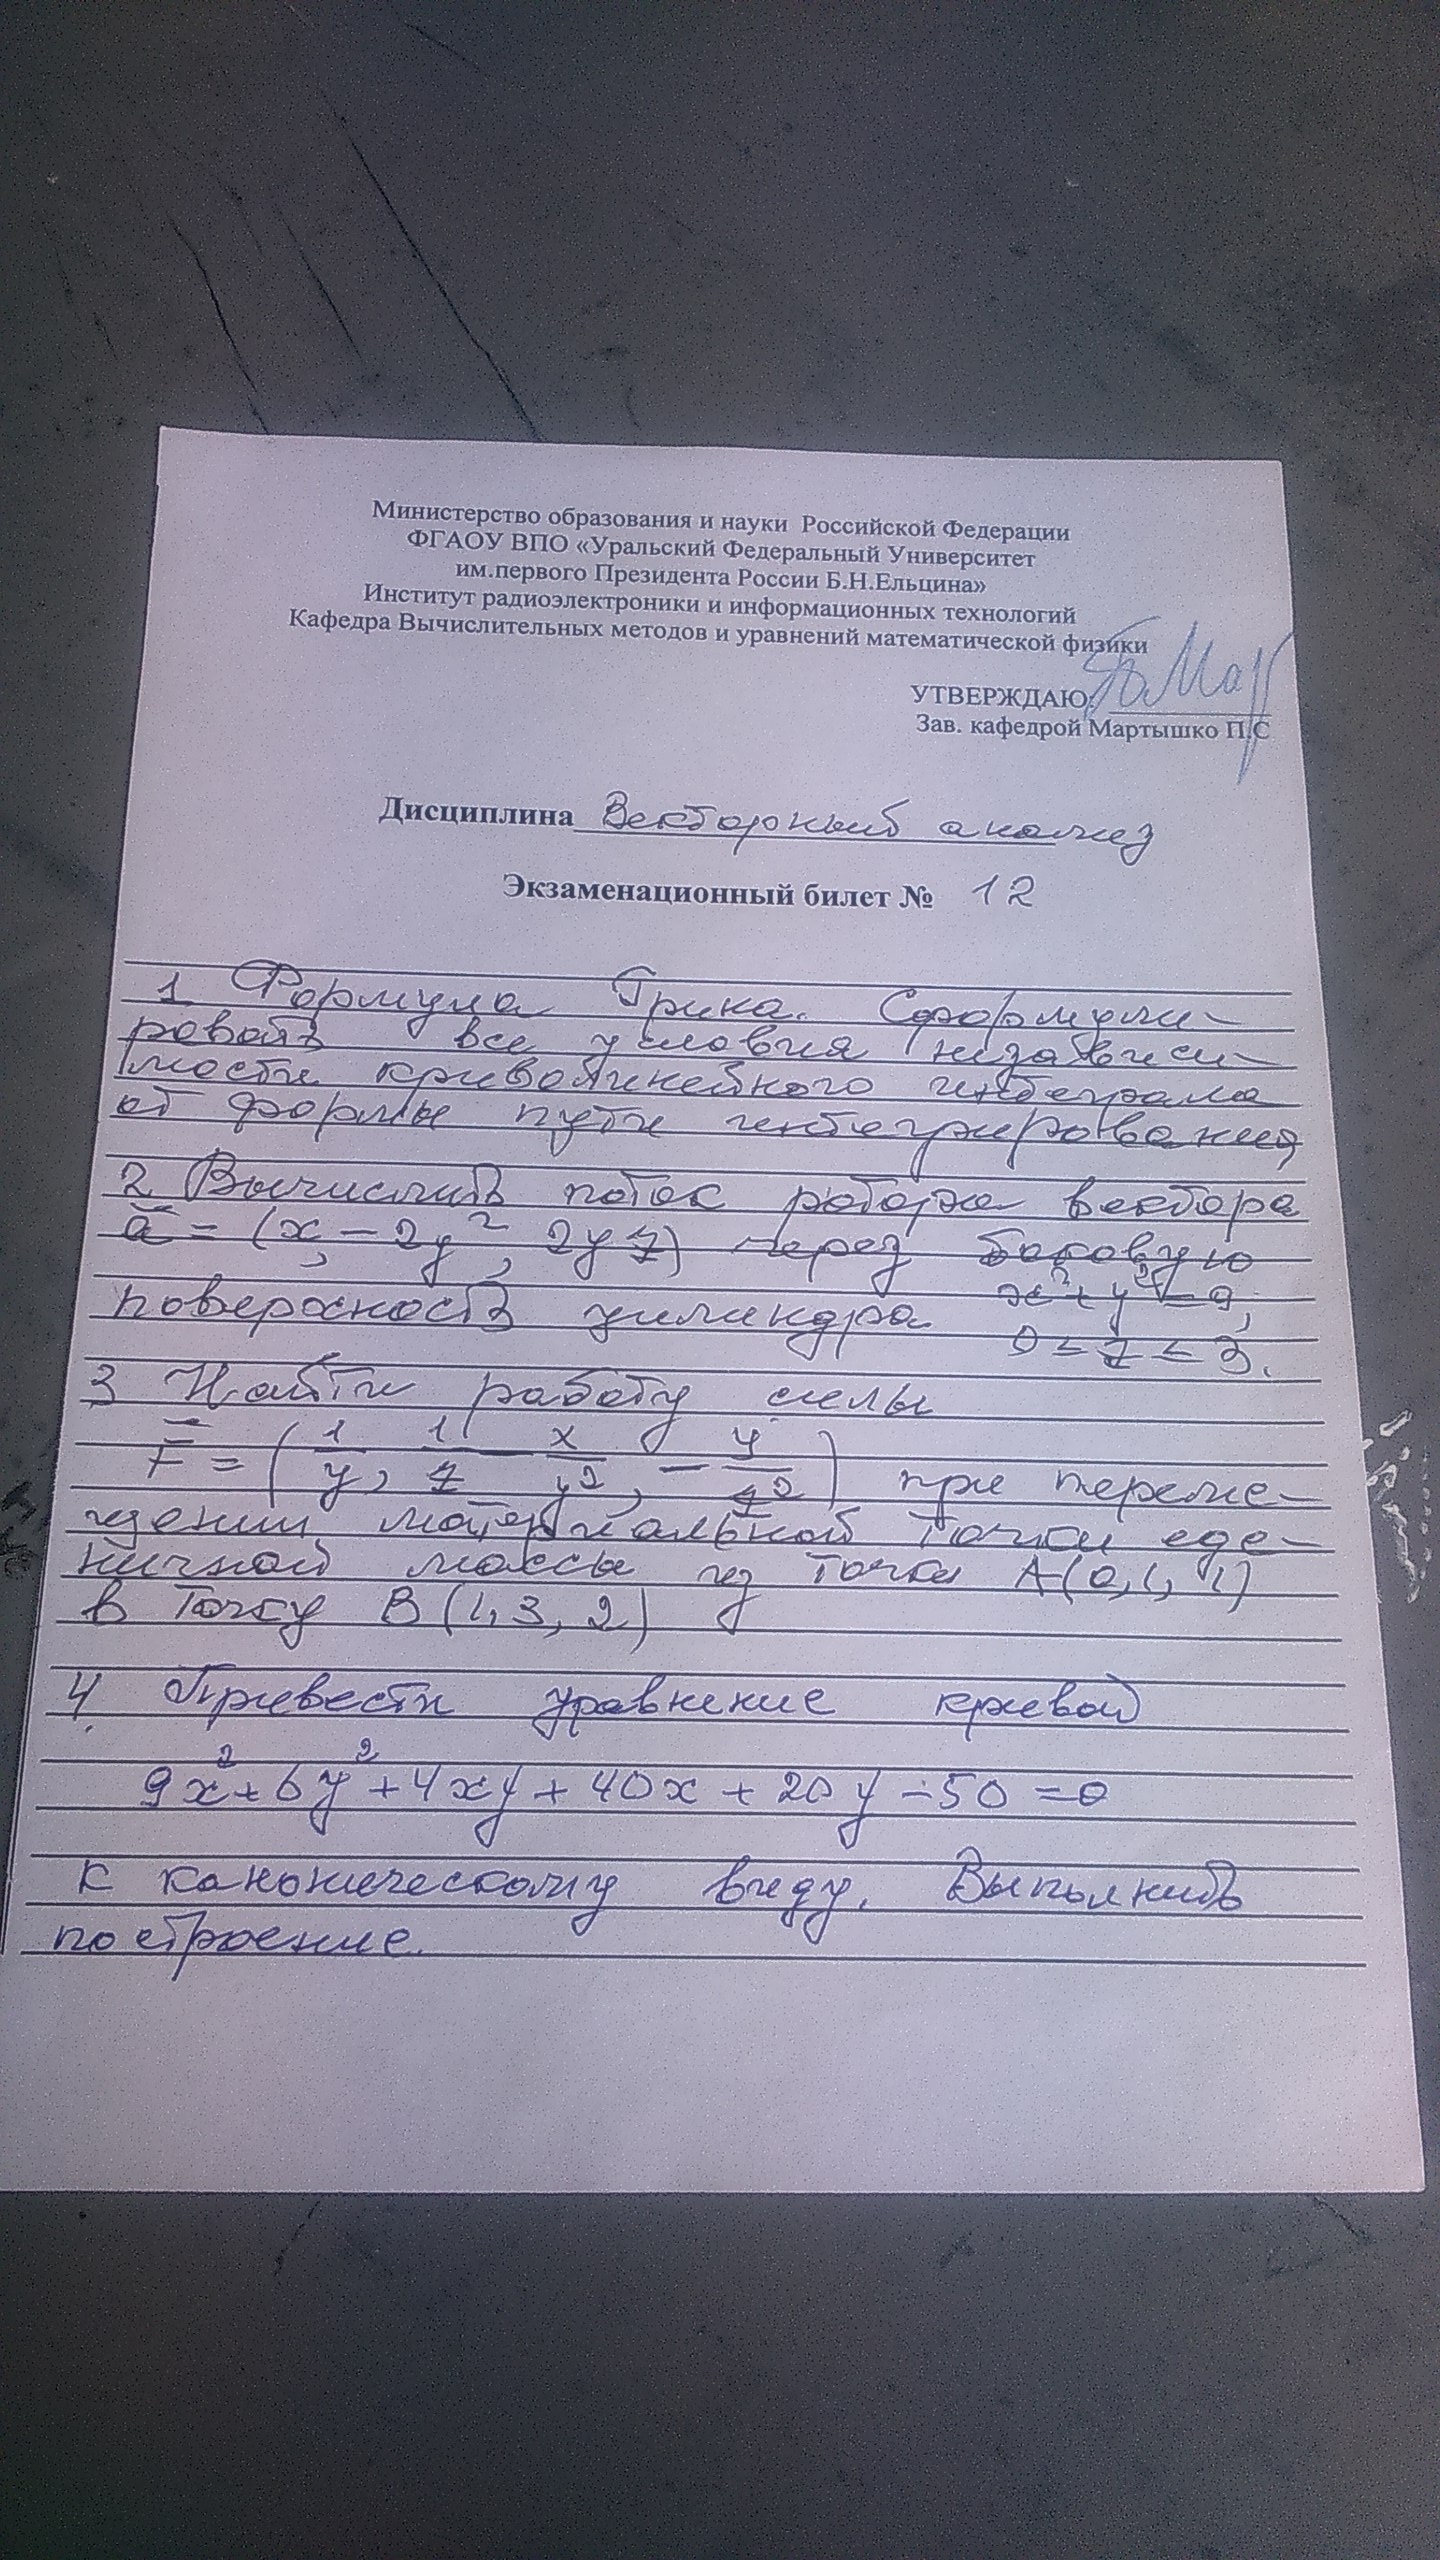 Министерство образования и науки Российской Федерации
ФГАОУ ВПО «Уральский Федеральный Университет
им.первого Президента России Б.Н.Ельцина»
Институт радиоэлектроники и информационных технологий
Кафедра Вычислительных методов и уравнений математической физики
УТВЕРЖДАЮ:
Зав. кафедрой Мартышко П.С
Дисциплина Векторный анализ
Экзаменационный билет № 12
1 Формула Грина. Сформули-
ровать все условия независи-
мости криволинейного интеграла
от формы пути интегрирования
2 Вычислить поток ротора вектора
a̅ = (x, -2y², 2yz) через боковую
поверхность цилиндра x²+y²=9;
0≤z≤3.
3 Найти работу силы
F̅ = (1/y, 1/z - x/y², - y/z²) при переме-
щении материальной точки еди-
ничной массы из точки A(0,1,1)
в точку B(1,3,2)
4. Привести уравнение кривой
9x²+6y²+4xy+40x+20y-50=0
к каноническому виду. Выполнить
построение.